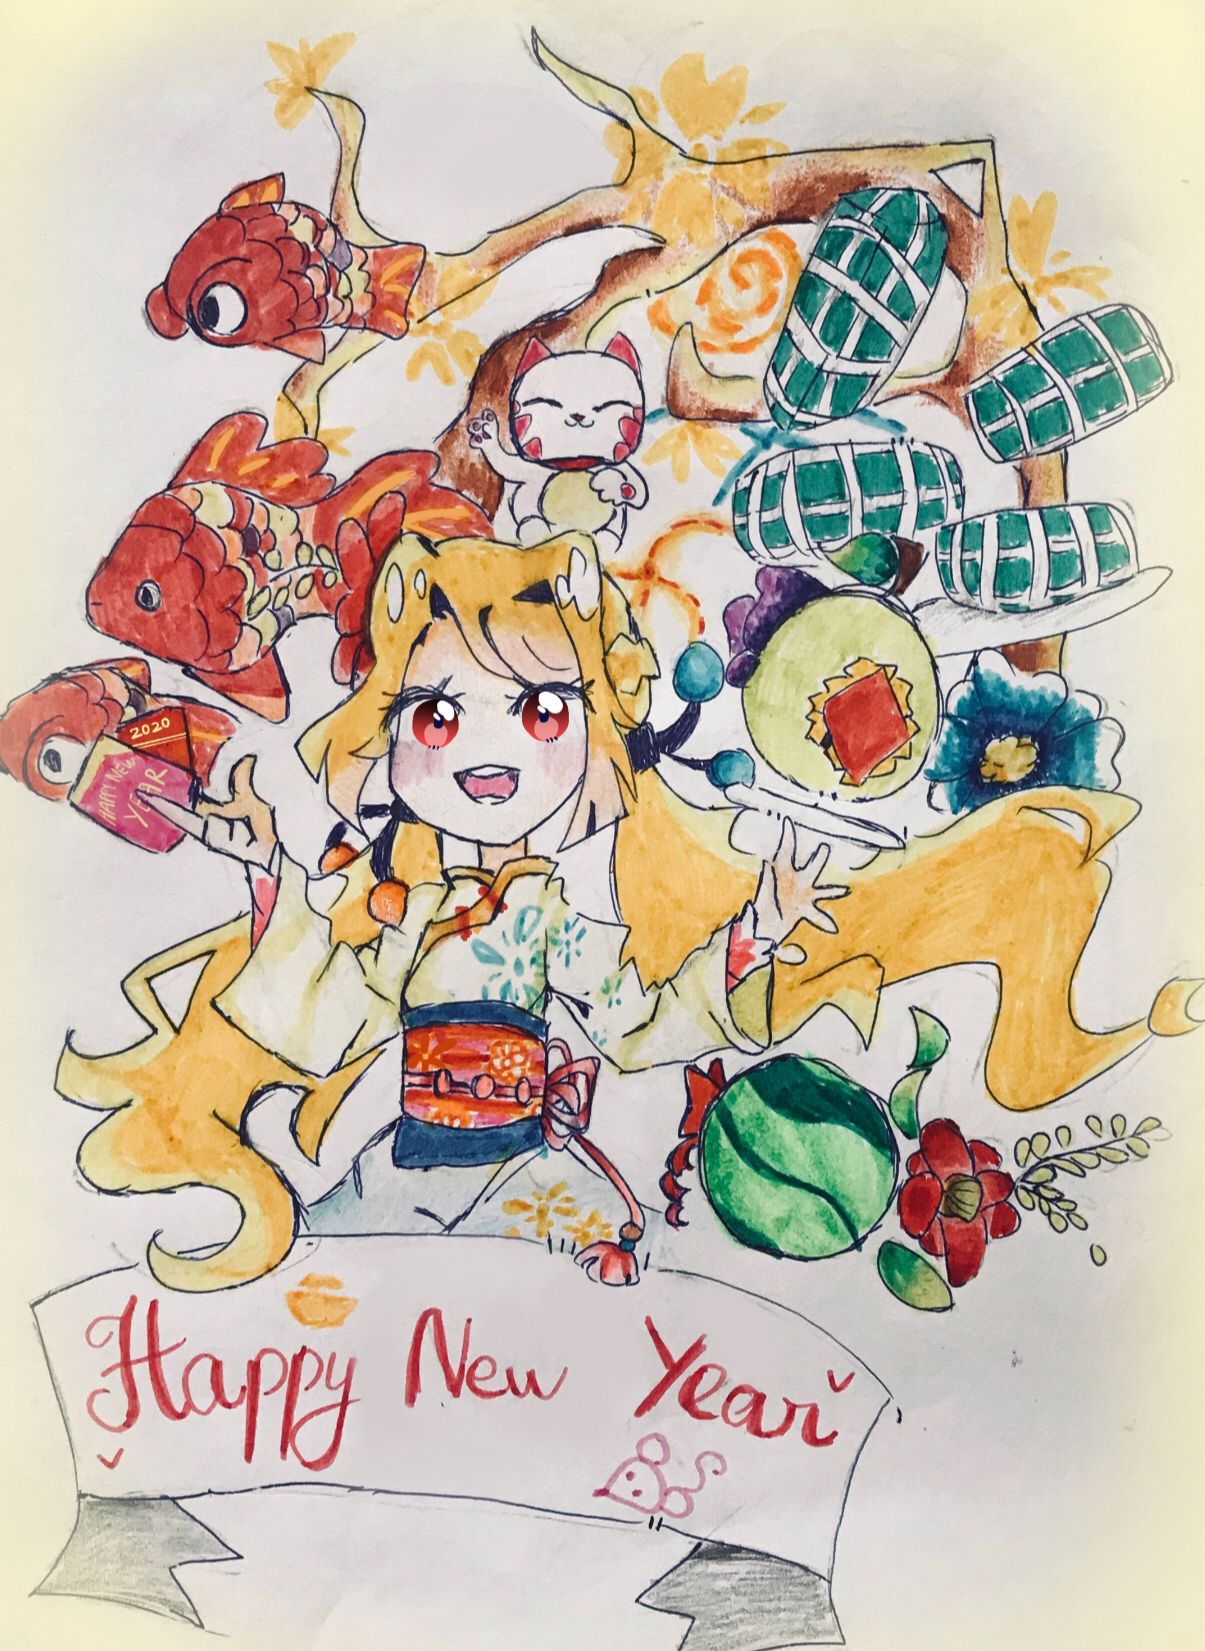 2020
HAPPY NEW
YEAR
Happy New Year